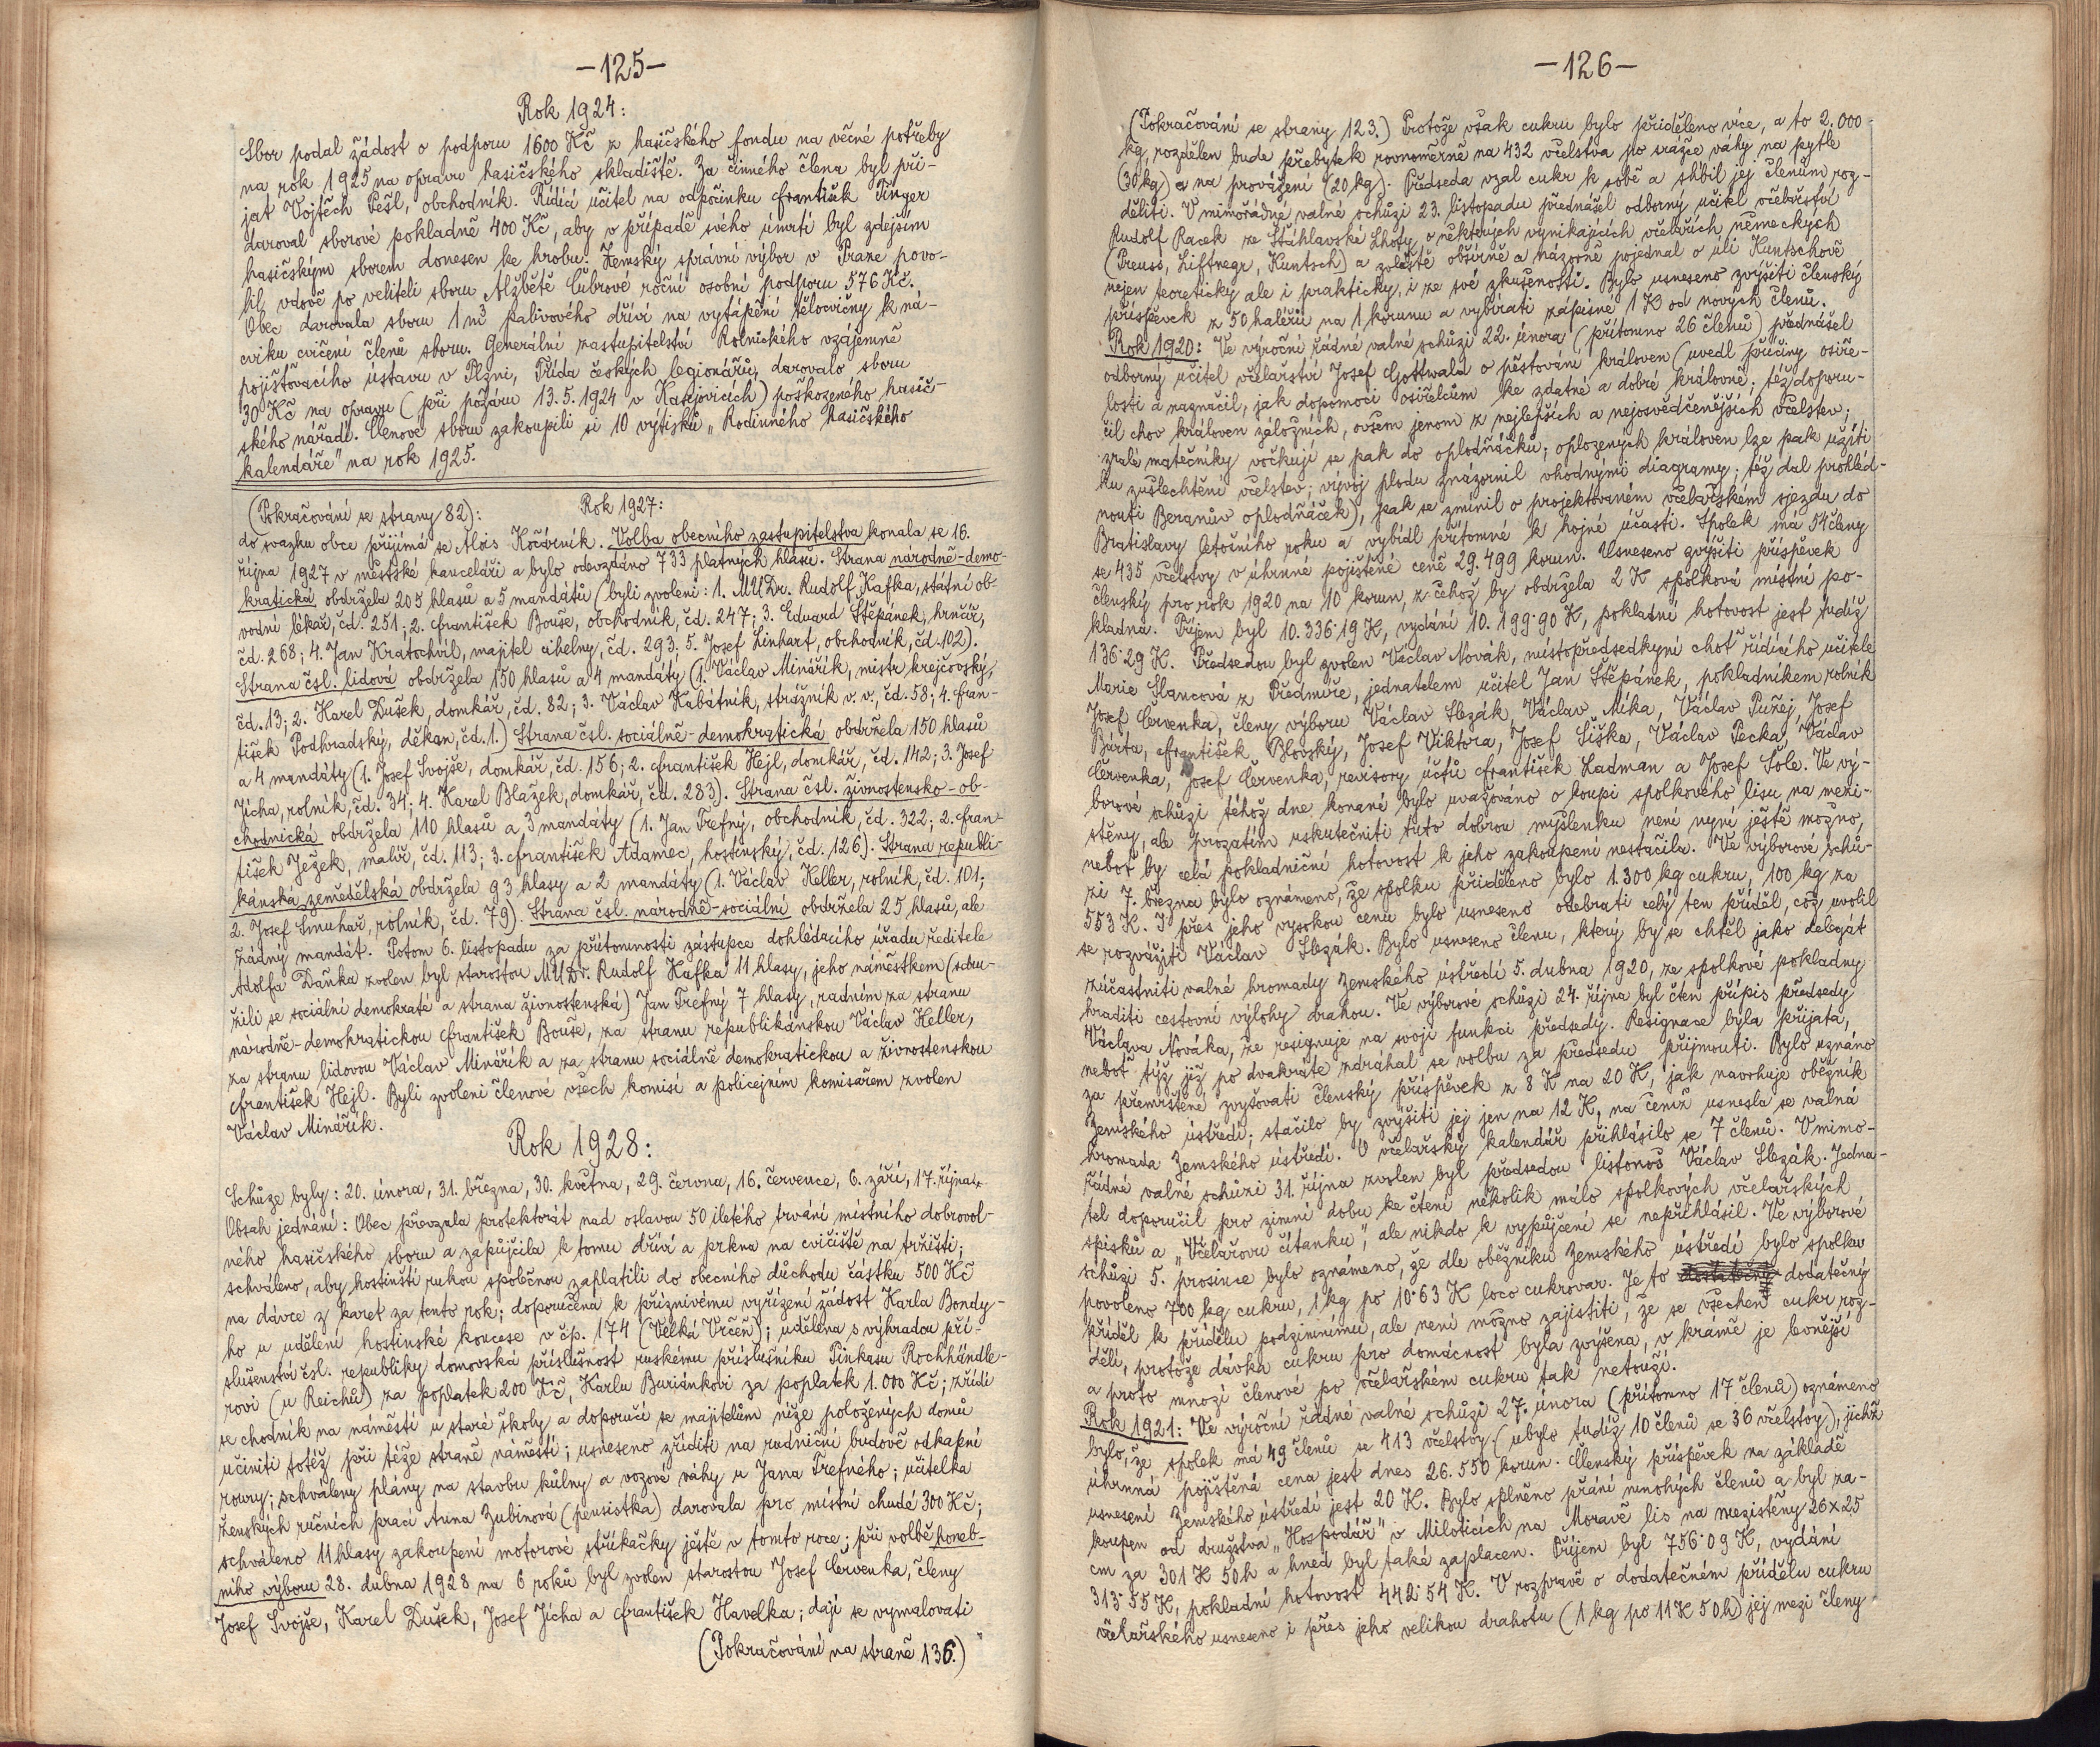 -125-
Rok 1924:
Sbor podal žádost o podporu 1600 Kč z hasičského fondu na věcné potřeby
na rok 1925 na opravu hasičského skladiště. Za činného člena byl při-
jat Vojtěch Pešl, obchodník. Řídící učitel na odpočinku František Tinger
daroval sborové pokladně 400 Kč, aby v případě svého úmrtí byl zdejším
hasičským sborem donesen ke hrobu. Zemský správní výbor v Praze povo-
lil vdově po veliteli sboru Alžbětě Čubrové roční osobní podporu 576 Kč.
Obec darovala sboru 1 m³ palivového dříví na vytápění tělocvičny k ná-
cviku cvičení členů sboru. Generální zastupitelství Rolnického vzájemně
pojišťovacího ústavu v Plzni, Třída českých legionářů, darovalo sboru
30 Kč na opravu (při požáru 13.5.1924 v Kasejovicích) poškozeného hasič-
ského nářadí. Členové sboru zakoupili si 10 výtisků „Rodinného hasičského
kalendáře" na rok 1925.
(Pokračování se strany 82): Rok 1927:
do svazku obce přijímá se Alois Kočárník. Volba obecního zastupitelstva konala se 16.
října 1927 v městské kanceláři a bylo odevzdáno 733 platných hlasů. Strana národně-demo-
kratická obdržela 205 hlasů a 5 mandátů (byli zvoleni: 1. MUDr. Rudolf Kafka, státní ob-
vodní lékař, čd. 251; 2. František Bouše, obchodník, čd. 247; 3. Eduard Štěpánek, hrnčář,
čd. 268; 4. Jan Kratochvil, majitel cihelny, čd. 293; 5. Josef Linhart, obchodník, čd. 102).
Strana čsl. lidová obdržela 150 hlasů a 4 mandáty (1. Václav Minářík, mistr krejčovský,
čd. 13; 2. Karel Dušek, domkář, čd. 82; 3. Václav Kabátník, strážník v. v., čd. 58; 4. Fran-
tišek Podhradský, děkan, čd. 1.) Strana čsl. sociálně-demokratická obdržela 150 hlasů
a 4 mandáty (1. Josef Svojše, domkář, čd. 156; 2. František Hejl, domkář, čd. 142; 3. Josef
Jícha, rolník, čd. 34; 4. Karel Blažek, domkář, čd. 283). Strana čsl. živnostensko-ob-
chodnická obdržela 110 hlasů a 3 mandáty (1. Jan Trefný, obchodník, čd. 322; 2. Fran-
tišek Ježek, malíř, čd. 113; 3. František Adamec, hostinský, čd. 126). Strana republi-
kánská zemědělská obdržela 93 hlasy a 2 mandáty (1. Václav Keller, rolník, čd. 101;
2. Josef Smuhař, rolník, čd. 79). Strana čsl. národně-sociální obdržela 25 hlasů, ale
žádný mandát. Potom 6. listopadu za přítomnosti zástupce dohlédacího úřadu ředitele
Adolfa Daňka zvolen byl starostou MUDr. Rudolf Kafka 11 hlasy, jeho náměstkem (sdru-
žili se sociální demokraté a strana živnostenská) Jan Trefný 7 hlasy, radním za stranu
národně-demokratickou František Bouše, za stranu republikánskou Václav Keller,
za stranu lidovou Václav Minářík a za stranu sociálně demokratickou a živnostenskou
František Hejl. Byli zvoleni členové všech komisí a policejním komisařem zvolen
Václav Minářík.
Rok 1928:
Schůze byly: 20. února, 31. března, 30. května, 29. června, 16. července, 6. září, 17. října.
Obsah jednání: Obec převzala protektorát nad oslavou 50 iletého trvání místního dobrovol-
ného hasičského sboru a zapůjčila k tomu dříví a prkna na cvičiště na tržišti;
schváleno, aby hostinští rukou společnou zaplatili do obecního důchodu částku 500 Kč
na dávce z karet za tento rok; doporučena k příznivému vyřízení žádost Karla Bondy-
ho u udělení hostinské koncese v čp. 174 (Velká Vrčeň); udělena s výhradou pří-
slušenství čsl. republiky domovská příslušnost ruskému příslušníku Pinkasu Rochhändle-
rovi (u Reichů) za poplatek 200 Kč, Karlu Buriánkovi za poplatek 1.000 Kč; zřídí
se chodník na náměstí u staré školy a doporučí se majitelům níže položených domů
učiniti totéž při téže straně náměstí; usneseno zříditi na radniční budově odkapní
roury; schváleny plány na stavbu kůlny a vozové váhy u Jana Trefného; učitelka
ženských ručních prací Anna Zubinová (pensistka) darovala pro místní chudé 300 Kč;
schváleno 11 hlasy zakoupení motorové stříkačky ještě v tomto roce; při volbě honeb-
ního výboru 28. dubna 1928 na 6 roků byl zvolen starostou Josef Červenka, členy
Josef Svojše, Karel Dušek, Josef Jícha a František Havelka; dají se vymalovati
(Pokračování na straně 136.)
-126-
(Pokračování se strany 123.) Protože však cukru bylo přiděleno více, a to 2.000
kg, rozdělen bude přebytek rovnoměrně na 432 včelstva po srážce váhy na pytle
(30 kg) a na provážení (20 kg). Předseda vzal cukr k sobě a slíbil jej členům roz-
děliti. V mimořádné valné schůzi 23. listopadu přednášel odborný učitel včelařství
Rudolf Racek ze Šťáhlavské Lhoty o některých vynikajících včelařích německých
(Preuss, Liftnegr, Kuntsch) a zvláště obšírně a názorně pojednal o úli Kuntschově
nejen teoreticky ale i prakticky, i ze své zkušenosti. Bylo usneseno zvýšiti členský
příspěvek z 50 haléřů na 1 korunu a vybírati zápisné 1 K od nových členů.
Rok 1920: Ve výroční řádné valné schůzi 22. února (přítomno 26 členů) přednášel
odborný učitel včelařství Josef Gottwald o pěstování královen (uvedl příčiny osiře-
losti a naznačil, jak dopomoci osiřelcům ke zdatné a dobré královně; též doporu-
čil chov královen záložních, ovšem jenom z nejlepších a nejosvědčenějších včelstev;
zralé matečníky vočkují se pak do oplodňáčků; oplozených královen lze pak užíti
ku zušlechtění včelstev; vývoj plodu znázornil vhodnými diagramy; též dal prohléd-
nouti Beranův oplodňáček), pak se zmínil o projektovaném včelařském sjezdu do
Bratislavy letošního roku a vybídl přítomné k hojné účasti. Spolek má 54 členy
se 435 včelstvy v úhrnné pojištěné ceně 29.499 korun. Usneseno zvýšiti příspěvek
členský pro rok 1920 na 10 korun, z čehož by obdržela 2 K spolková místní po-
kladna. Příjem byl 10.336·19 K, vydání 10.199·90 K, pokladní hotovost jest tudíž
136·29 K. Předsedou byl zvolen Václav Novák, místopředsedkyní choť řídícího učitele
Marie Slancová z Předmíře, jednatelem učitel Jan Štěpánek, pokladníkem rolník
Josef Červenka, členy výboru Václav Slezák, Václav Míka, Václav Pužej, Josef
Bárta, František Blovský, Josef Viktora, Josef Šiška, Václav Pecka, Václav
Červenka, Josef Červenka, revisory účtů František Ladman a Josef Šole. Ve vý-
borové schůzi téhož dne konané bylo uvažováno o koupi spolkového lisu na mezi-
stěny, ale prozatím uskutečniti tuto dobrou myšlenku není nyní ještě možno,
neboť by celá pokladniční hotovost k jeho zakoupení nestačila. Ve výborové schů-
zi 7. března bylo oznámeno, že spolku přiděleno bylo 1.300 kg cukru, 100 kg za
553 K. I přes jeho vysokou cenu bylo usneseno odebrati celý ten příděl, což uvolil
se rozvážiti Václav Slezák. Bylo usneseno členu, který by se chtěl jako delegát
zúčastniti valné hromady Zemského ústředí 5. dubna 1920, ze spolkové pokladny
hraditi cestovní výlohy drahou. Ve výborové schůzi 24. října byl čten přípis předsedy
Václava Nováka, že resignuje na svoji funkci předsedy. Resignace byla přijata,
neboť týž již po dvakráte zdráhal se volbu za předsedu přijmouti. Bylo uznáno
za přemrštěné zvyšovati členský příspěvek z 8 K na 20 K, jak navrhuje oběžník
Zemského ústředí; stačilo by zvýšiti jej jen na 12 K, na čemž usnesla se valná
hromada Zemského ústředí. O včelařský kalendář přihlásilo se 7 členů. V mimo-
řádné valné schůzi 31. října zvolen byl předsedou listonoš Václav Slezák. Jedna-
tel doporučil pro zimní dobu ke čtení několik málo spolkových včelařských
spisku a „Včelařovu čítanku", ale nikdo k vypůjčení se nepřihlásil. Ve výborové
schůzi 5. prosince bylo oznámeno, že dle oběžníku Zemského ústředí bylo spolku
povoleno 700 kg cukru, 1 kg po 10·63 K loco cukrovar. Je to dodatečný
příděl k přídělu podzimnímu, ale není možno zajistiti, že se všechen cukr roz-
dělí, protože dávka cukru pro domácnost byla zvýšena, v krámě je levnější
a proto mnozí členové po včelařském cukru tak netouží.
Rok 1921: Ve výroční řádné valné schůzi 27. února (přítomno 17 členů) oznámeno
bylo, že spolek má 49 členů se 413 včelstvy (ubylo tudíž 10 členů se 36 včelstvy), jichž
úhrnná pojištěná cena jest dnes 26.550 korun. Členský příspěvek na základě
usnesení Zemského ústředí jest 20 K. Bylo splněno přání mnohých členů a byl za-
koupen od družstva „Hospodář" v Miloticích na Moravě lis na mezistěny 26×25
cm za 301 K 50 h a hned byl také zaplacen. Příjem byl 756·09 K, vydání
313·55 K, pokladní hotovost 442·54 K. V rozpravě o dodatečném přídělu cukru
včelařského usneseno i přes jeho velikou drahotu (1 kg po 11 K 50 h) jej mezi členy